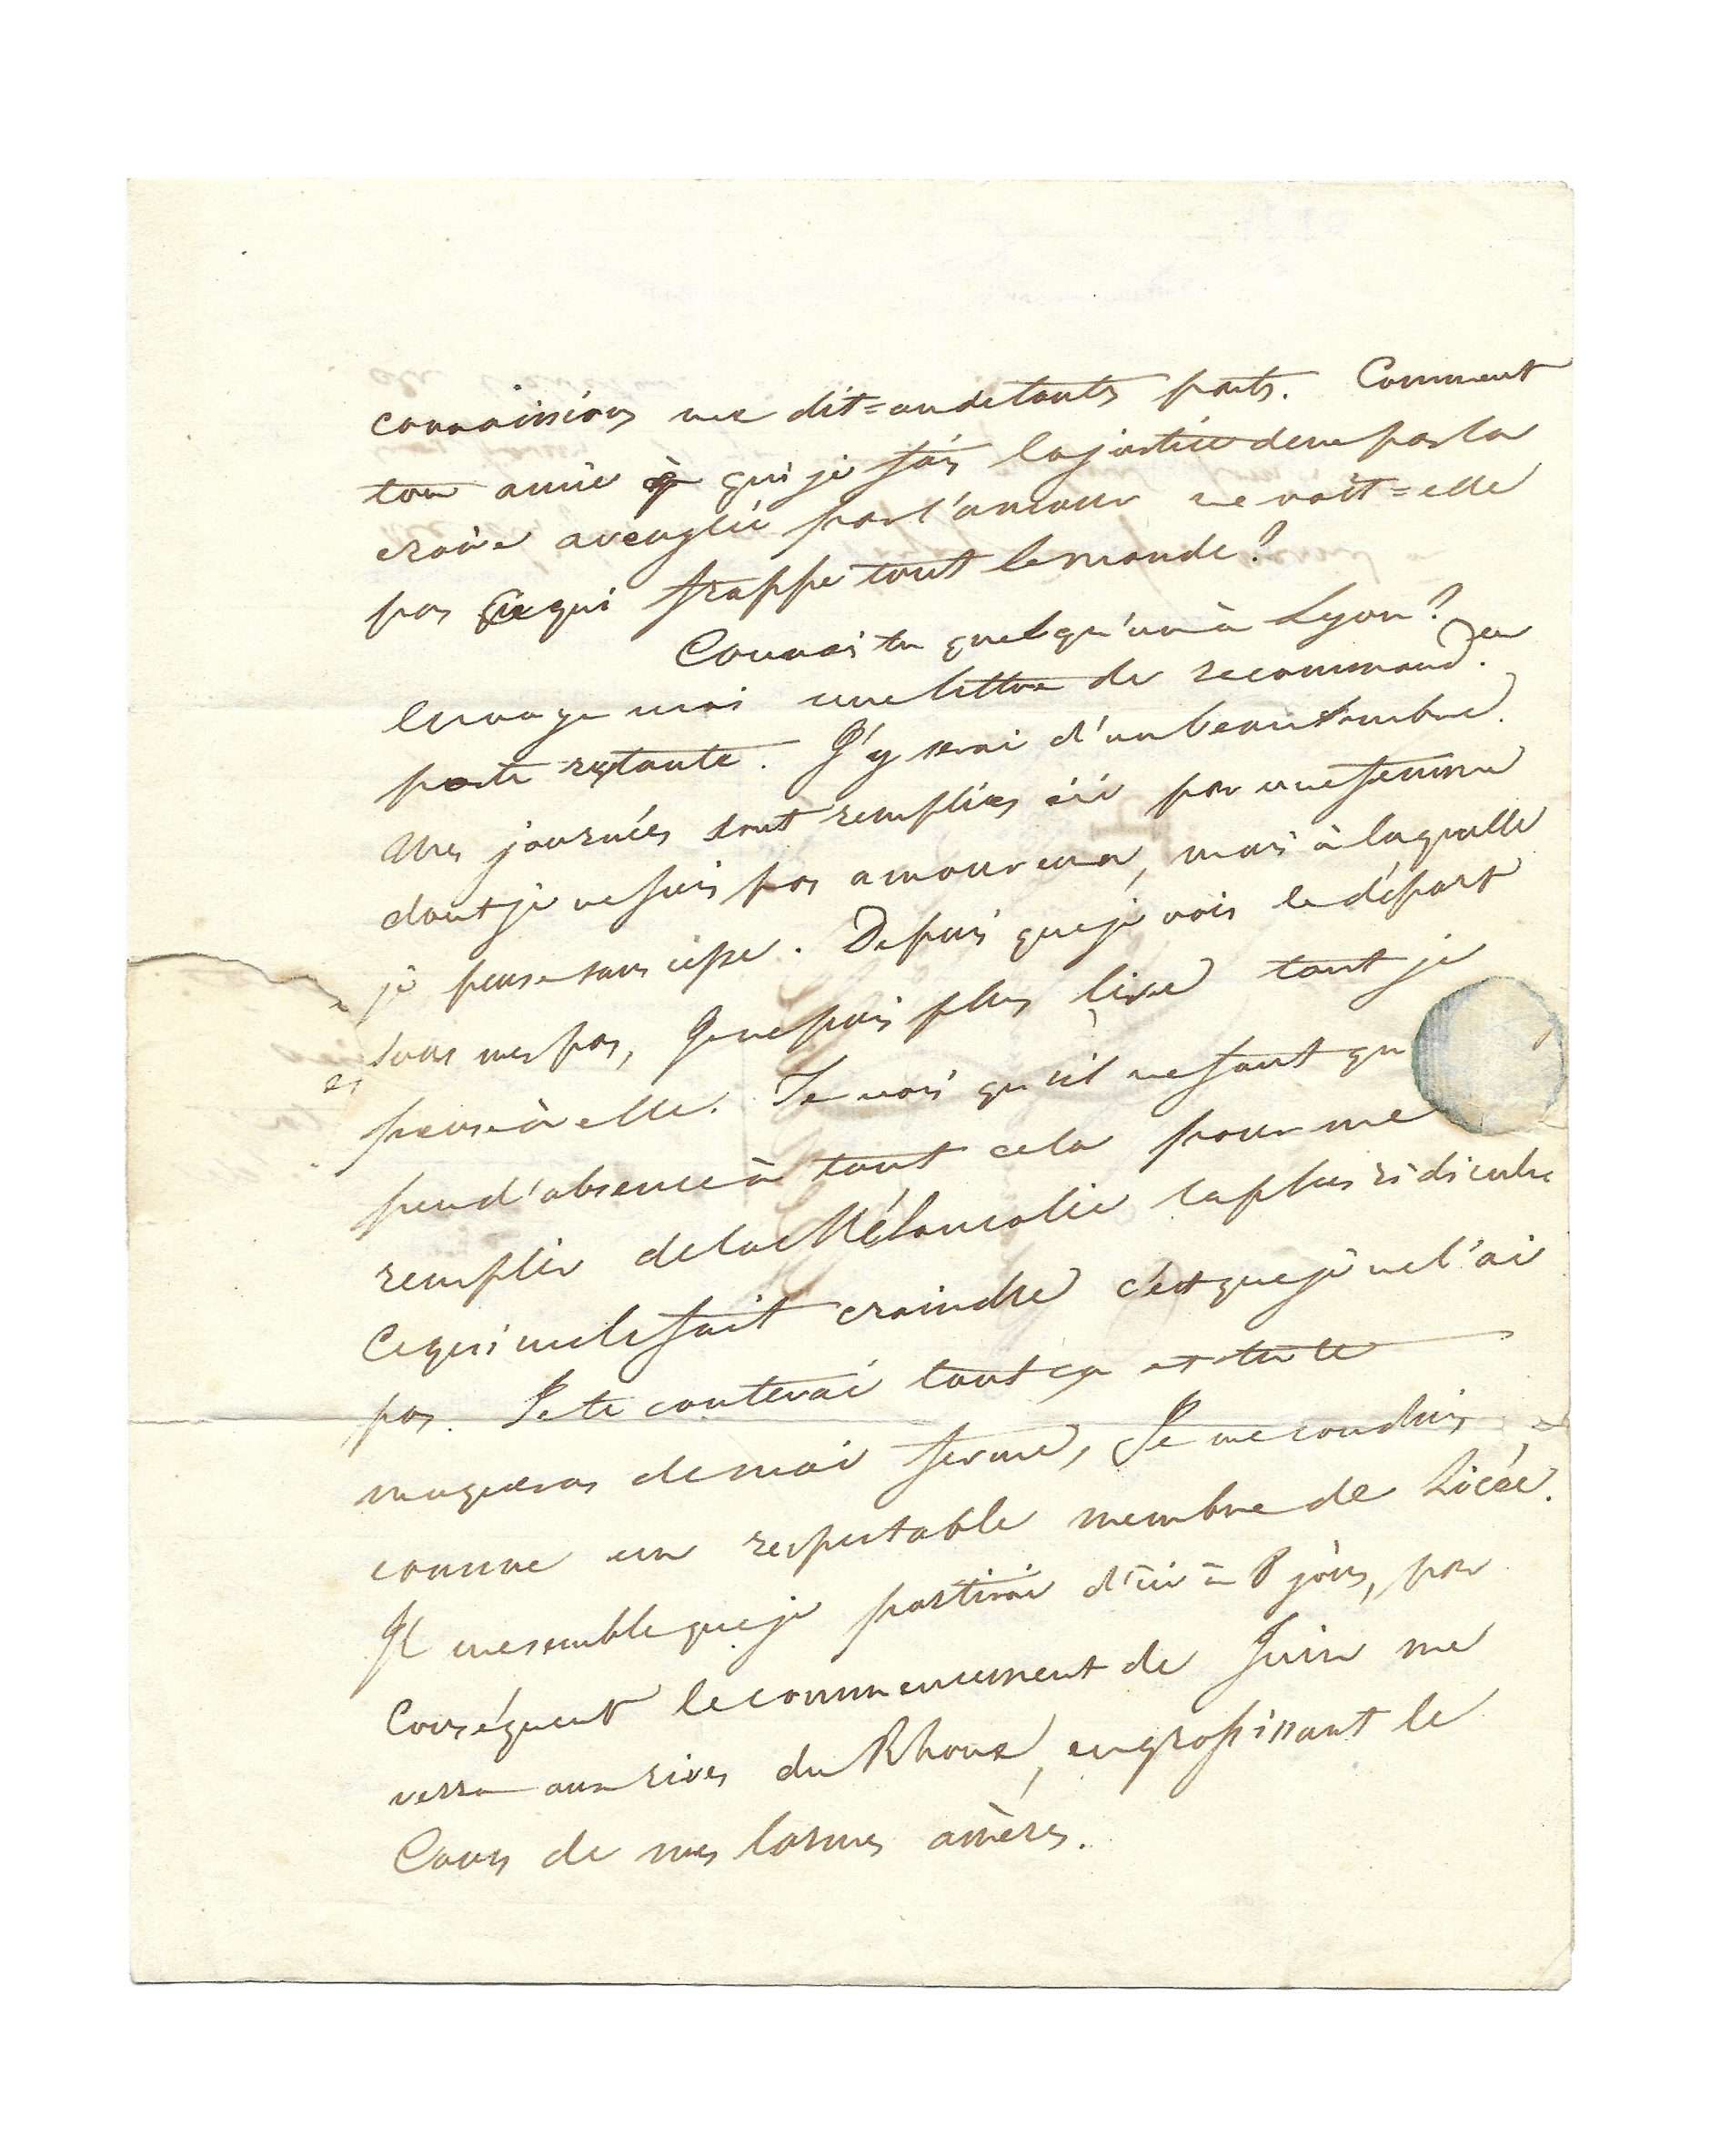 connaissions me dit=on de toutes parts. Comment
ton amie à qui je fais la justice de ne pas la
croire aveuglée par l'amour ne voit=elle
pas ce qui frappe tout le monde?
Connais tu quelqu'un à Lyon?
envoye moi une lettre de recommand.on
poste restante. J'y serai d'un beau sombre.
Mes journées sont remplies ici par une femme
dont je ne suis pas amoureux, mais à laquelle
je pense sans cesse. Depuis que je vois le départ
sous mes pas, Je ne puis plus lire tant je
pense à elle. Je vois qu'il ne faut qu
peu d'absence à tout cela pour me
remplir de la Mélancolie la plus ridicule
Ce qui me le fait craindre c'est que je ne l'ai
pas. Je te conterai tout ça et tu te
moqueras de moi ferme, Je me conduis
comme un respectable membre de Licée.
Il me semble que je partirai d'ici à 8 jours, par
Conséquent le commencement de Juin me
verra aux rives du Rhone, en grossissant le
Cours de mes larmes amères.